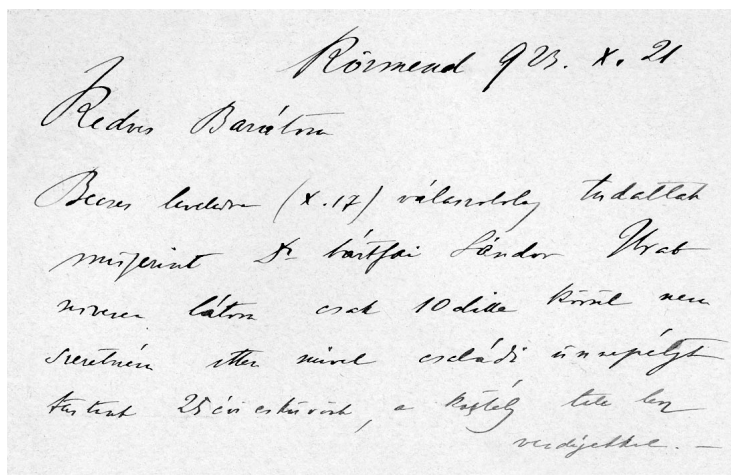 Körmend 923. X. 21
Kedves Barátom
Becses leveledre (X.17) válaszolólag tudatlak
miszerint Dr bártfai Sándor Urat
szivesen látom csak 10dike körül nem
szeretném itten mivel családi ünnepélyt
tartunk 25 évi esküvőnk, a kastély tele lesz
vendégekkel. –